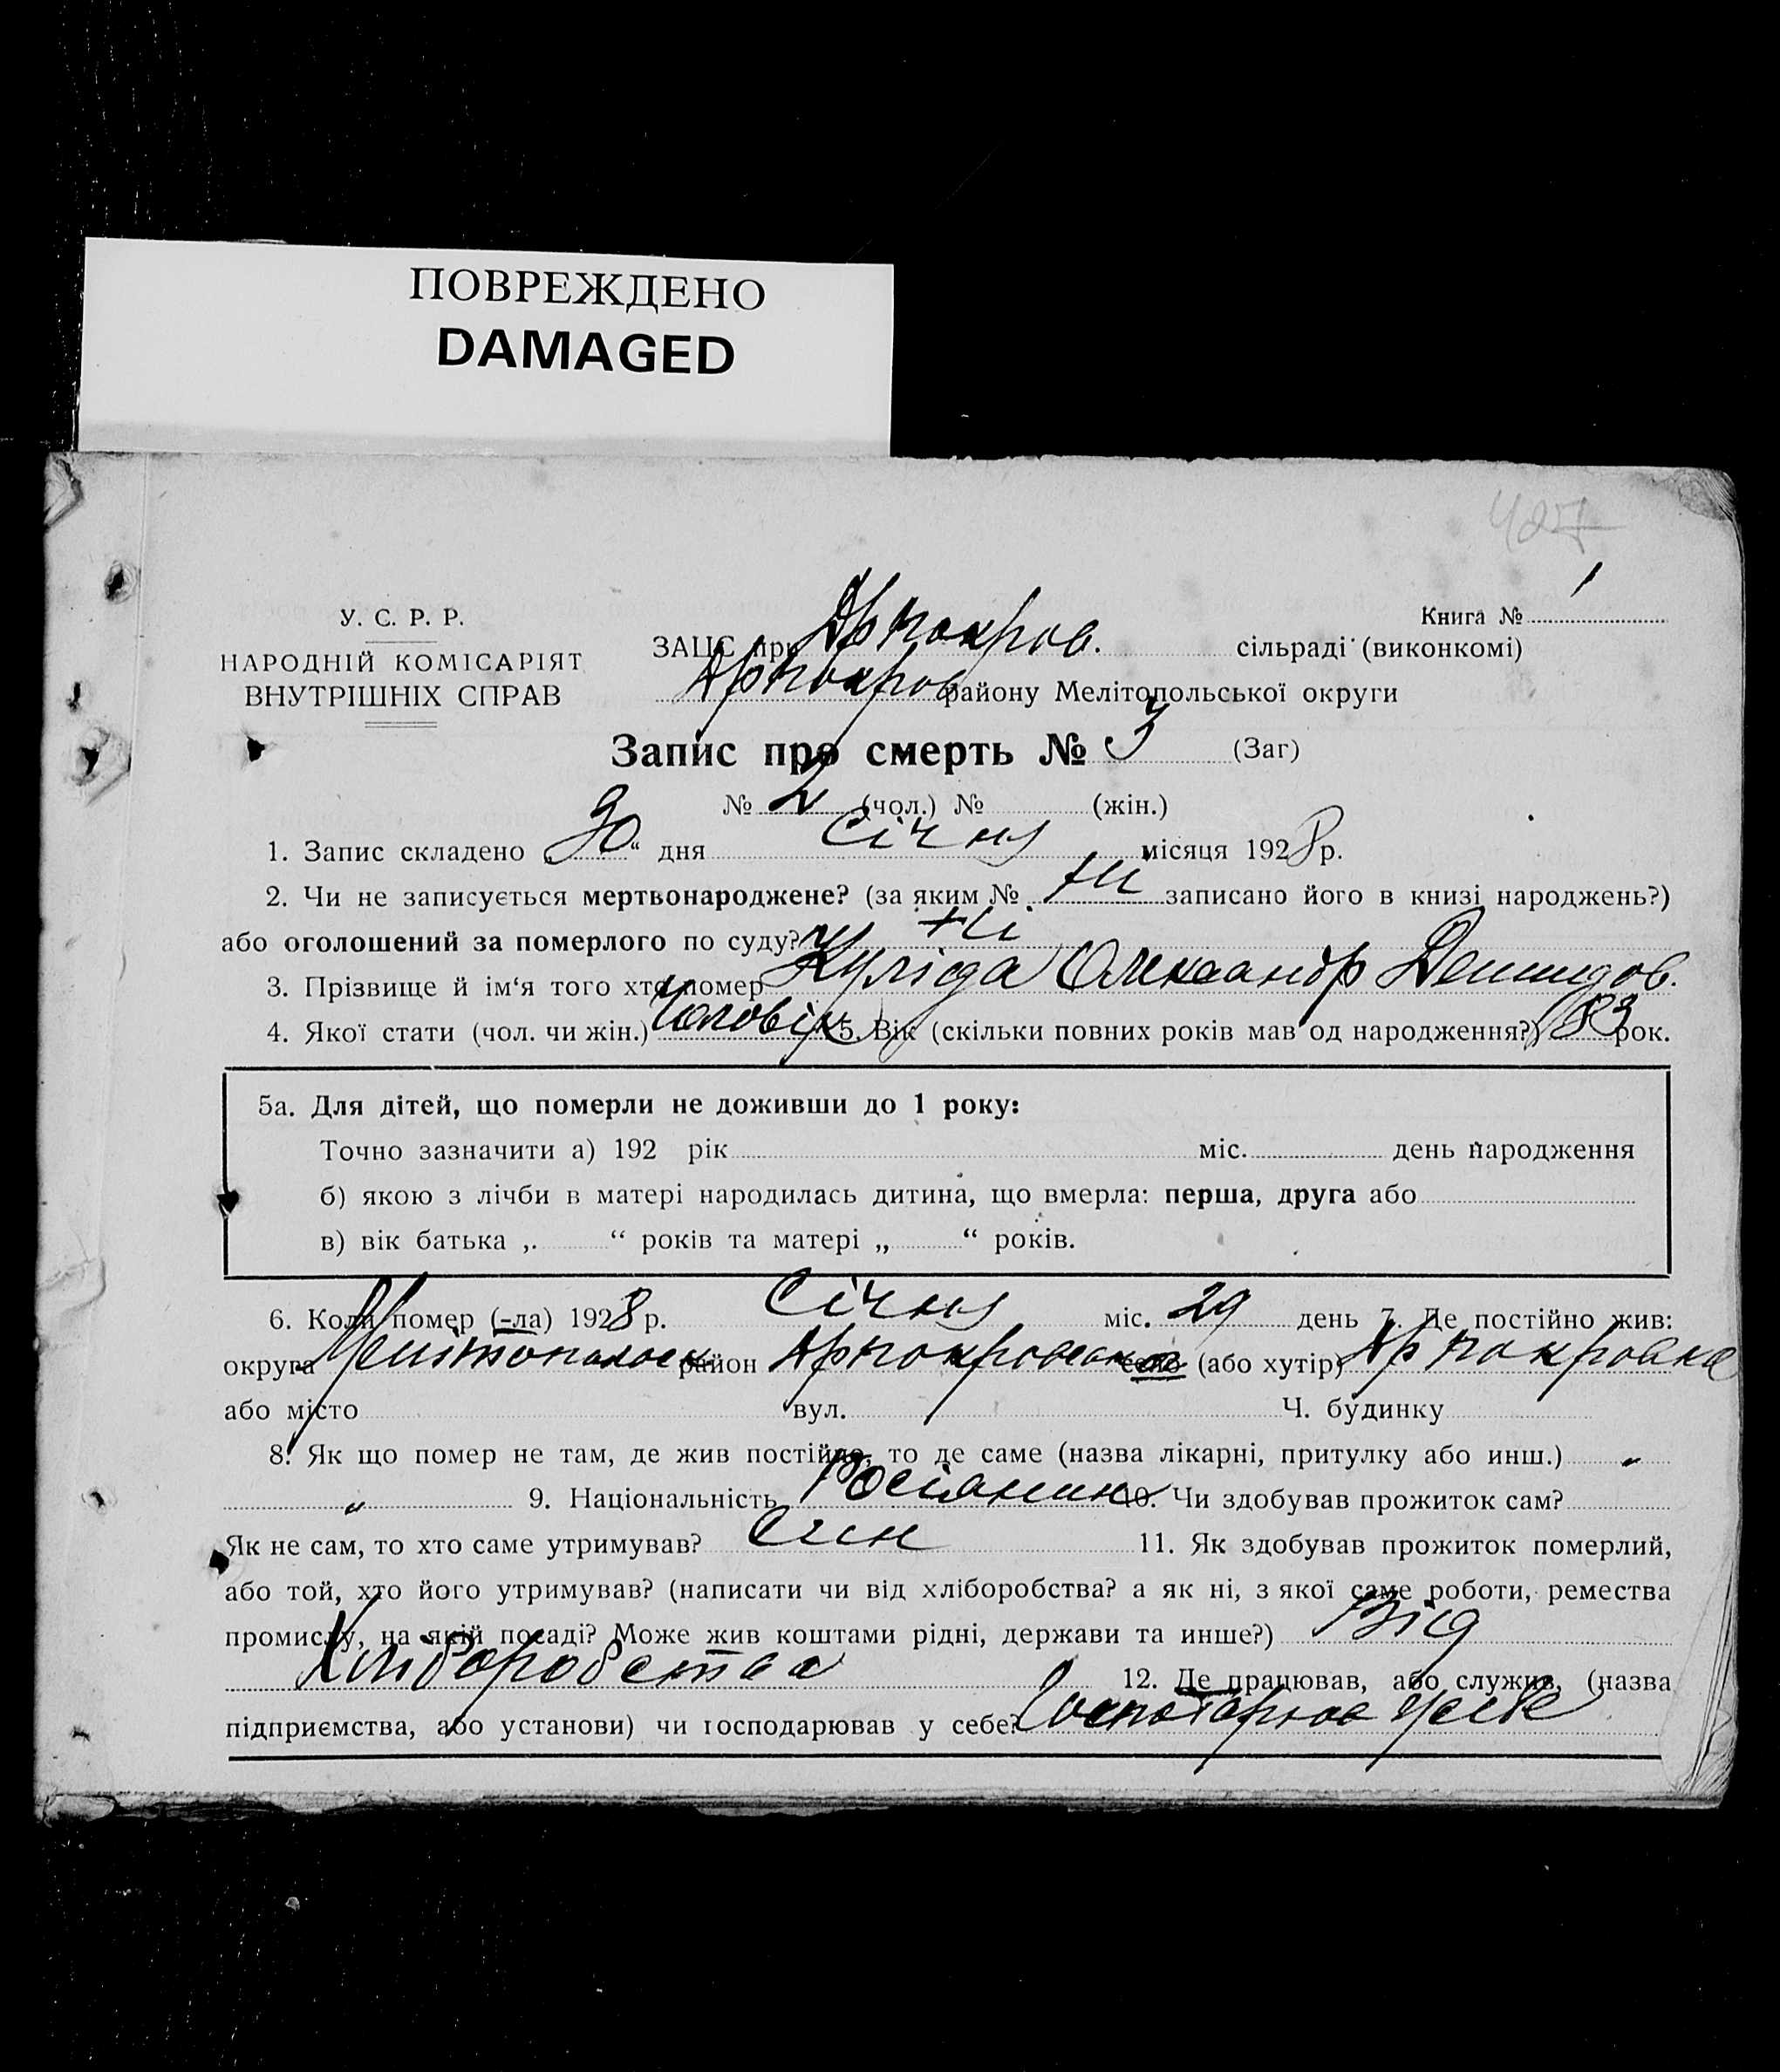 ПОВРЕЖДЕНО
DAMAGED
427
Книга № 1
У. С. Р. Р.
НАРОДНІЙ КОМІСАРІЯТ
ВНУТРІШНІХ СПРАВ
ЗАЦС при Арпокров. сільраді (виконкомі)
Арпокров району Мелітопольської округи
Запис про смерть № 3 (Заг)
№ 2 (чол.) № (жін.)
1. Запис складено „30“ дня Січня місяця 1928 р.
2. Чи не записується мертвонароджене? (за яким № записано його в книзі народжень?)
або оголошений за померлого по суду?
3. Прізвище й ім‘я того хто помер Куліда Олександр Демидов.
4. Якої стати (чол. чи жін.) Чоловік 5. Вік (скільки повних років мав од народження?) 83 рок.
5а. Для дітей, що померли не доживши до 1 року:
Точно зазначити а) 192 рік міс. день народження
б) якою з лічби в матері народилась дитина, що вмерла: перша, друга або
в) вік батька „ “ років та матері „ “ років.
6. Коли помер (-ла) 1928 р. Січня міс. 29 день 7. Де постійно жив:
округа Мелітопольск район Арпокровском село (або хутір) Ар покровка
або місто вул. Ч. будинку
8. Як що помер не там, де жив постійно, то де саме (назва лікарні, притулку або инш.) „
„ 9. Національність Росіянин 10. Чи здобував прожиток сам?
Як не сам, то хто саме утримував? Син 11. Як здобував прожиток померлий,
або той, хто його утримував? (написати чи від хліборобства? а як ні, з якої саме роботи, ремества
промислу, на якій посаді? Може жив коштами рідні, держави та инше?) Від
Хліборобства 12. Де працював, або служив, (назва
підприємства, або установи) чи господарював у себе? Господарював у себе